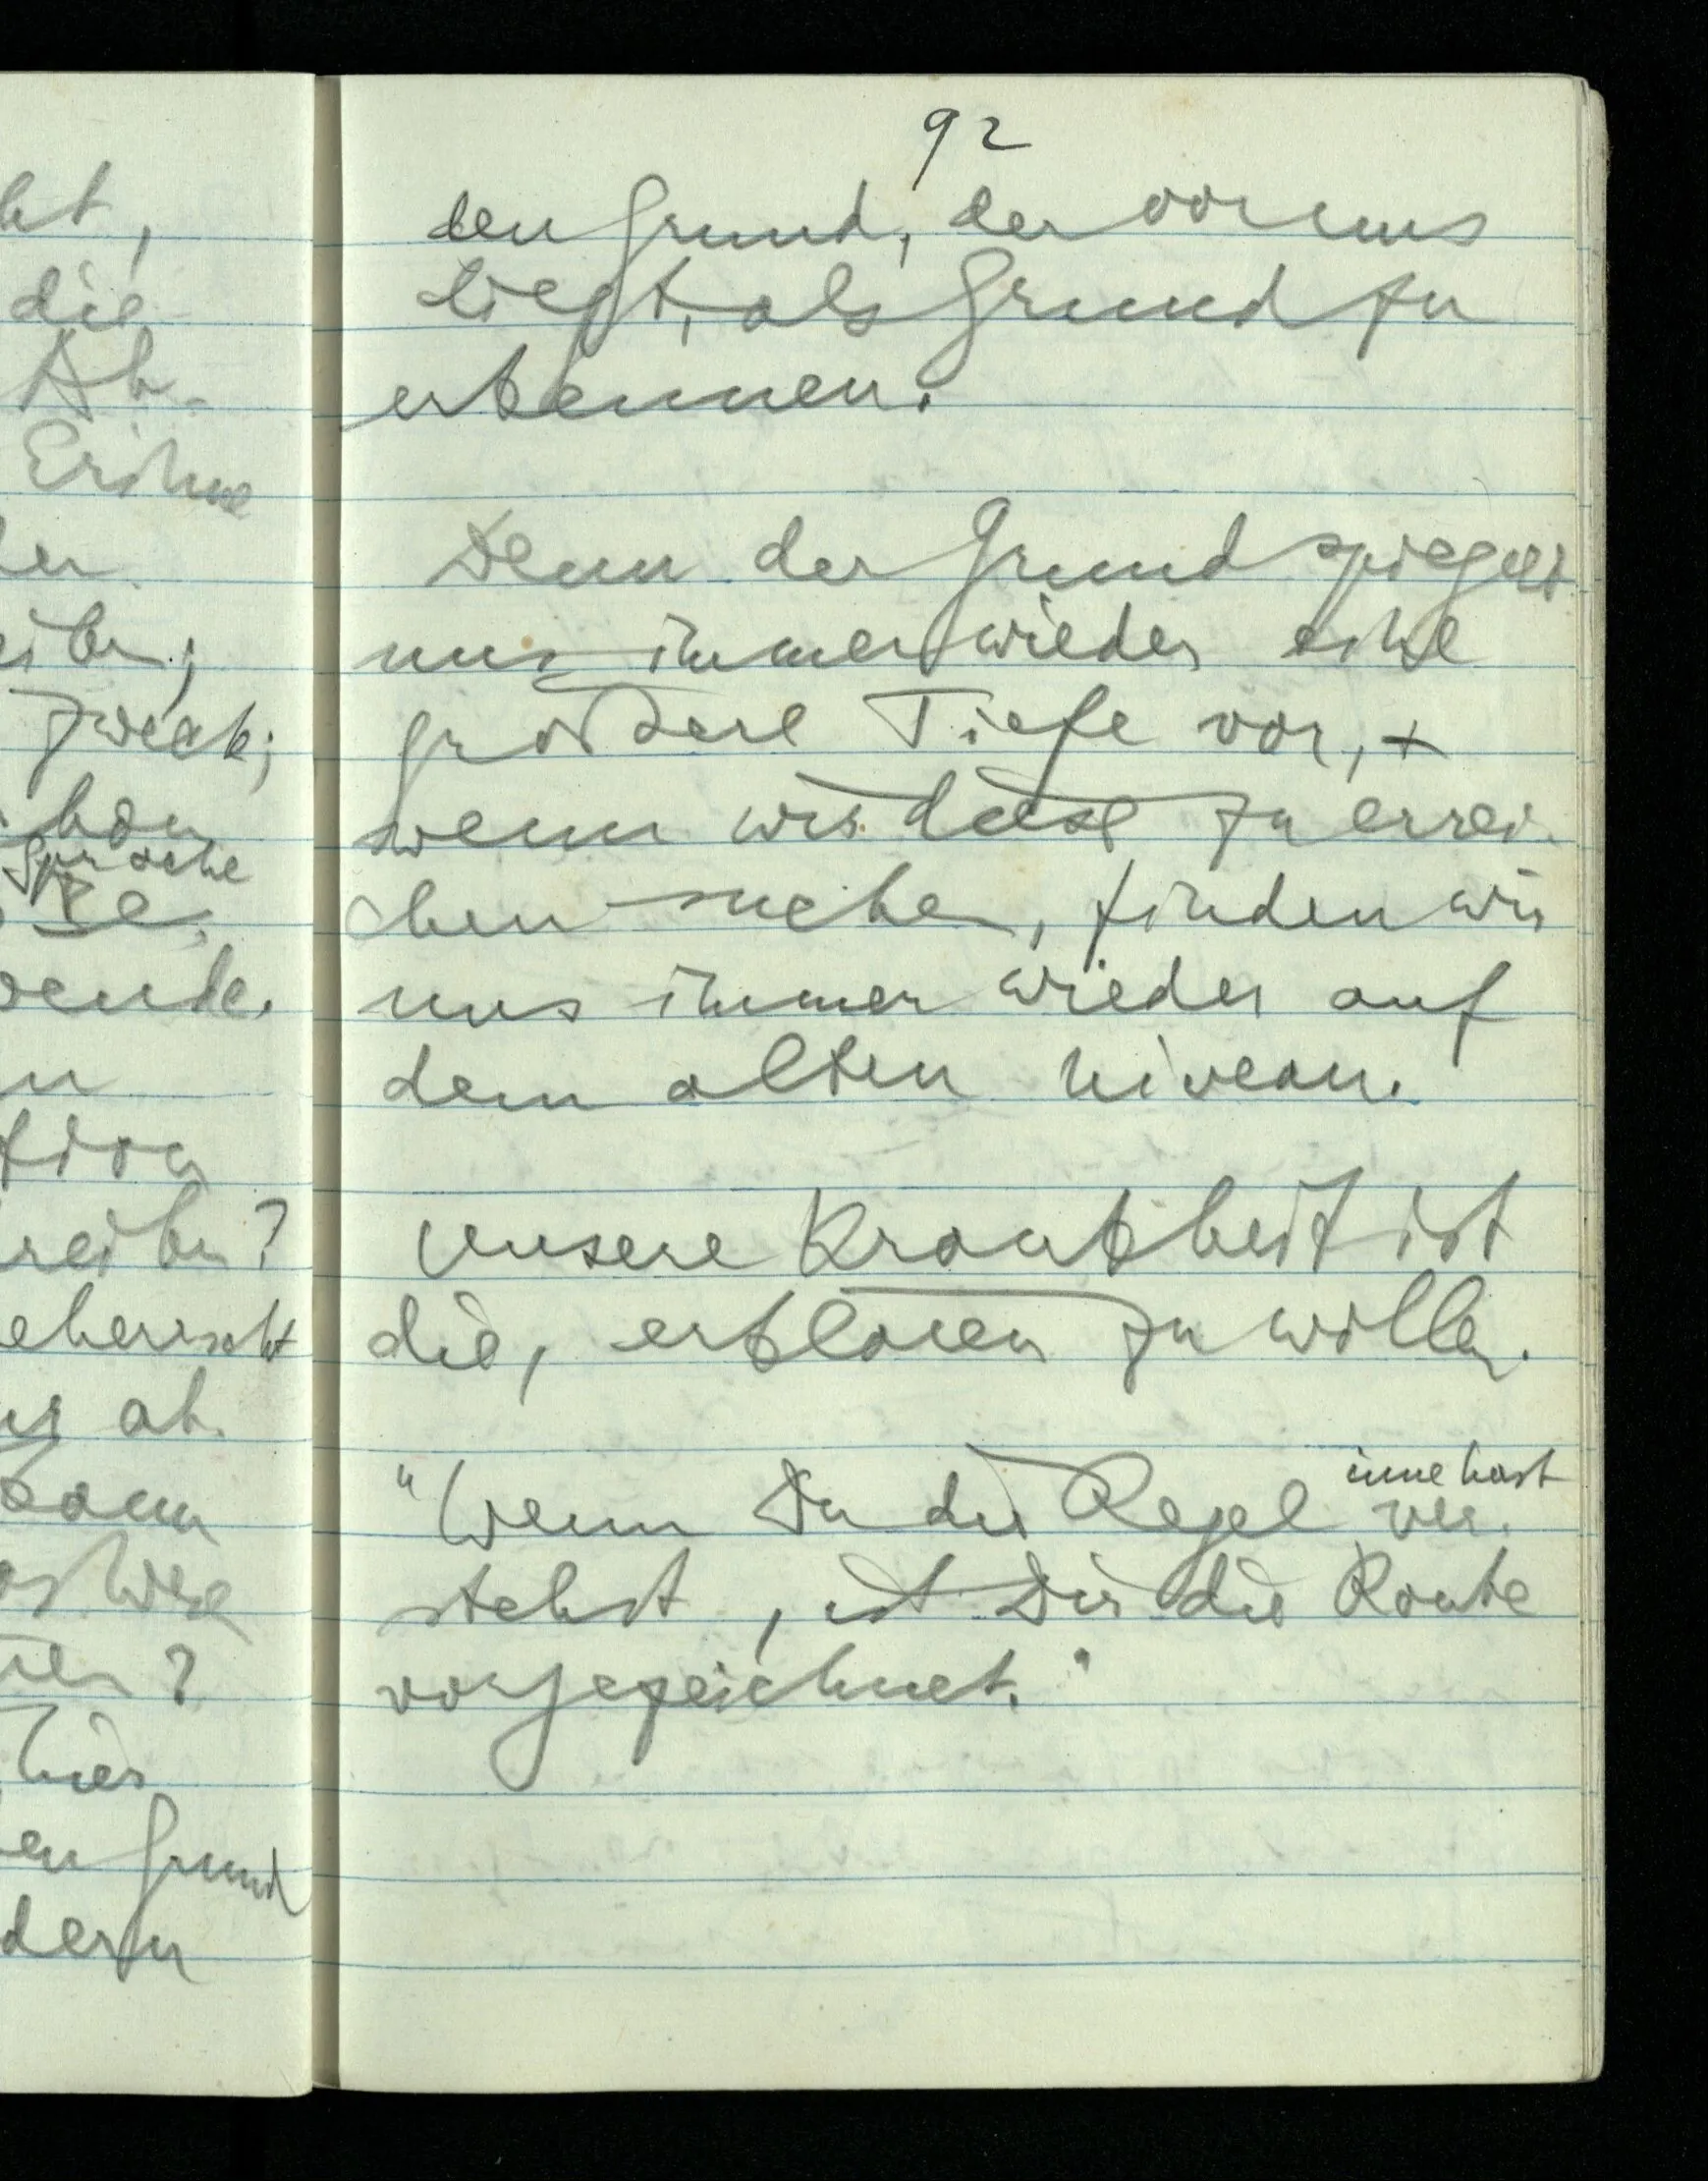 ht,
die
Ab-
Grüne
der
eiben;
Zweck;
Sprache
ende.
tion
reiben?
eherrscht
ab.
kann
hier
en Grund
dern
92
den Grund, der vor uns
liegt, als Grund zu
erkennen.
Denn der Grund spiegelt
uns immer wieder eine
größere Tiefe vor, +
wenn wir diese zu errei-
chen suchen, finden wir
uns immer wieder auf
dem alten Niveau.
Unsere Krankheit ist
die, erklären zu wollen.
"Wenn Du die Regel inne hast ver-
stehst, ist Dir die Route
vorgezeichnet."